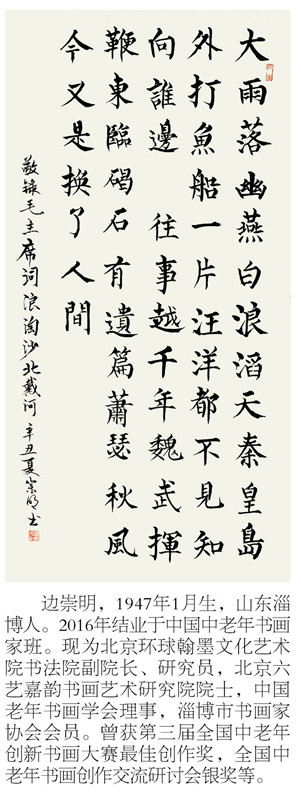 大雨落幽燕白浪滔天秦皇島
外打魚船一片汪洋都不見知
向誰邊 往事越千年魏武揮
鞭東臨碣石有遺篇蕭瑟秋風
今又是換了人間
敬錄毛主席词浪淘沙北戴河 辛丑夏崇明书
边崇明，1947年1月生，山东淄
博人。2016年结业于中国中老年书画
家班。现为北京环球翰墨文化艺术
院书法院副院长、研究员，北京六
艺嘉韵书画艺术研究院院士，中国
老年书画学会理事，淄博市书画家
协会会员。曾获第三届全国中老年
创新书画大赛最佳创作奖，全国中
老年书画创作交流研讨会银奖等。